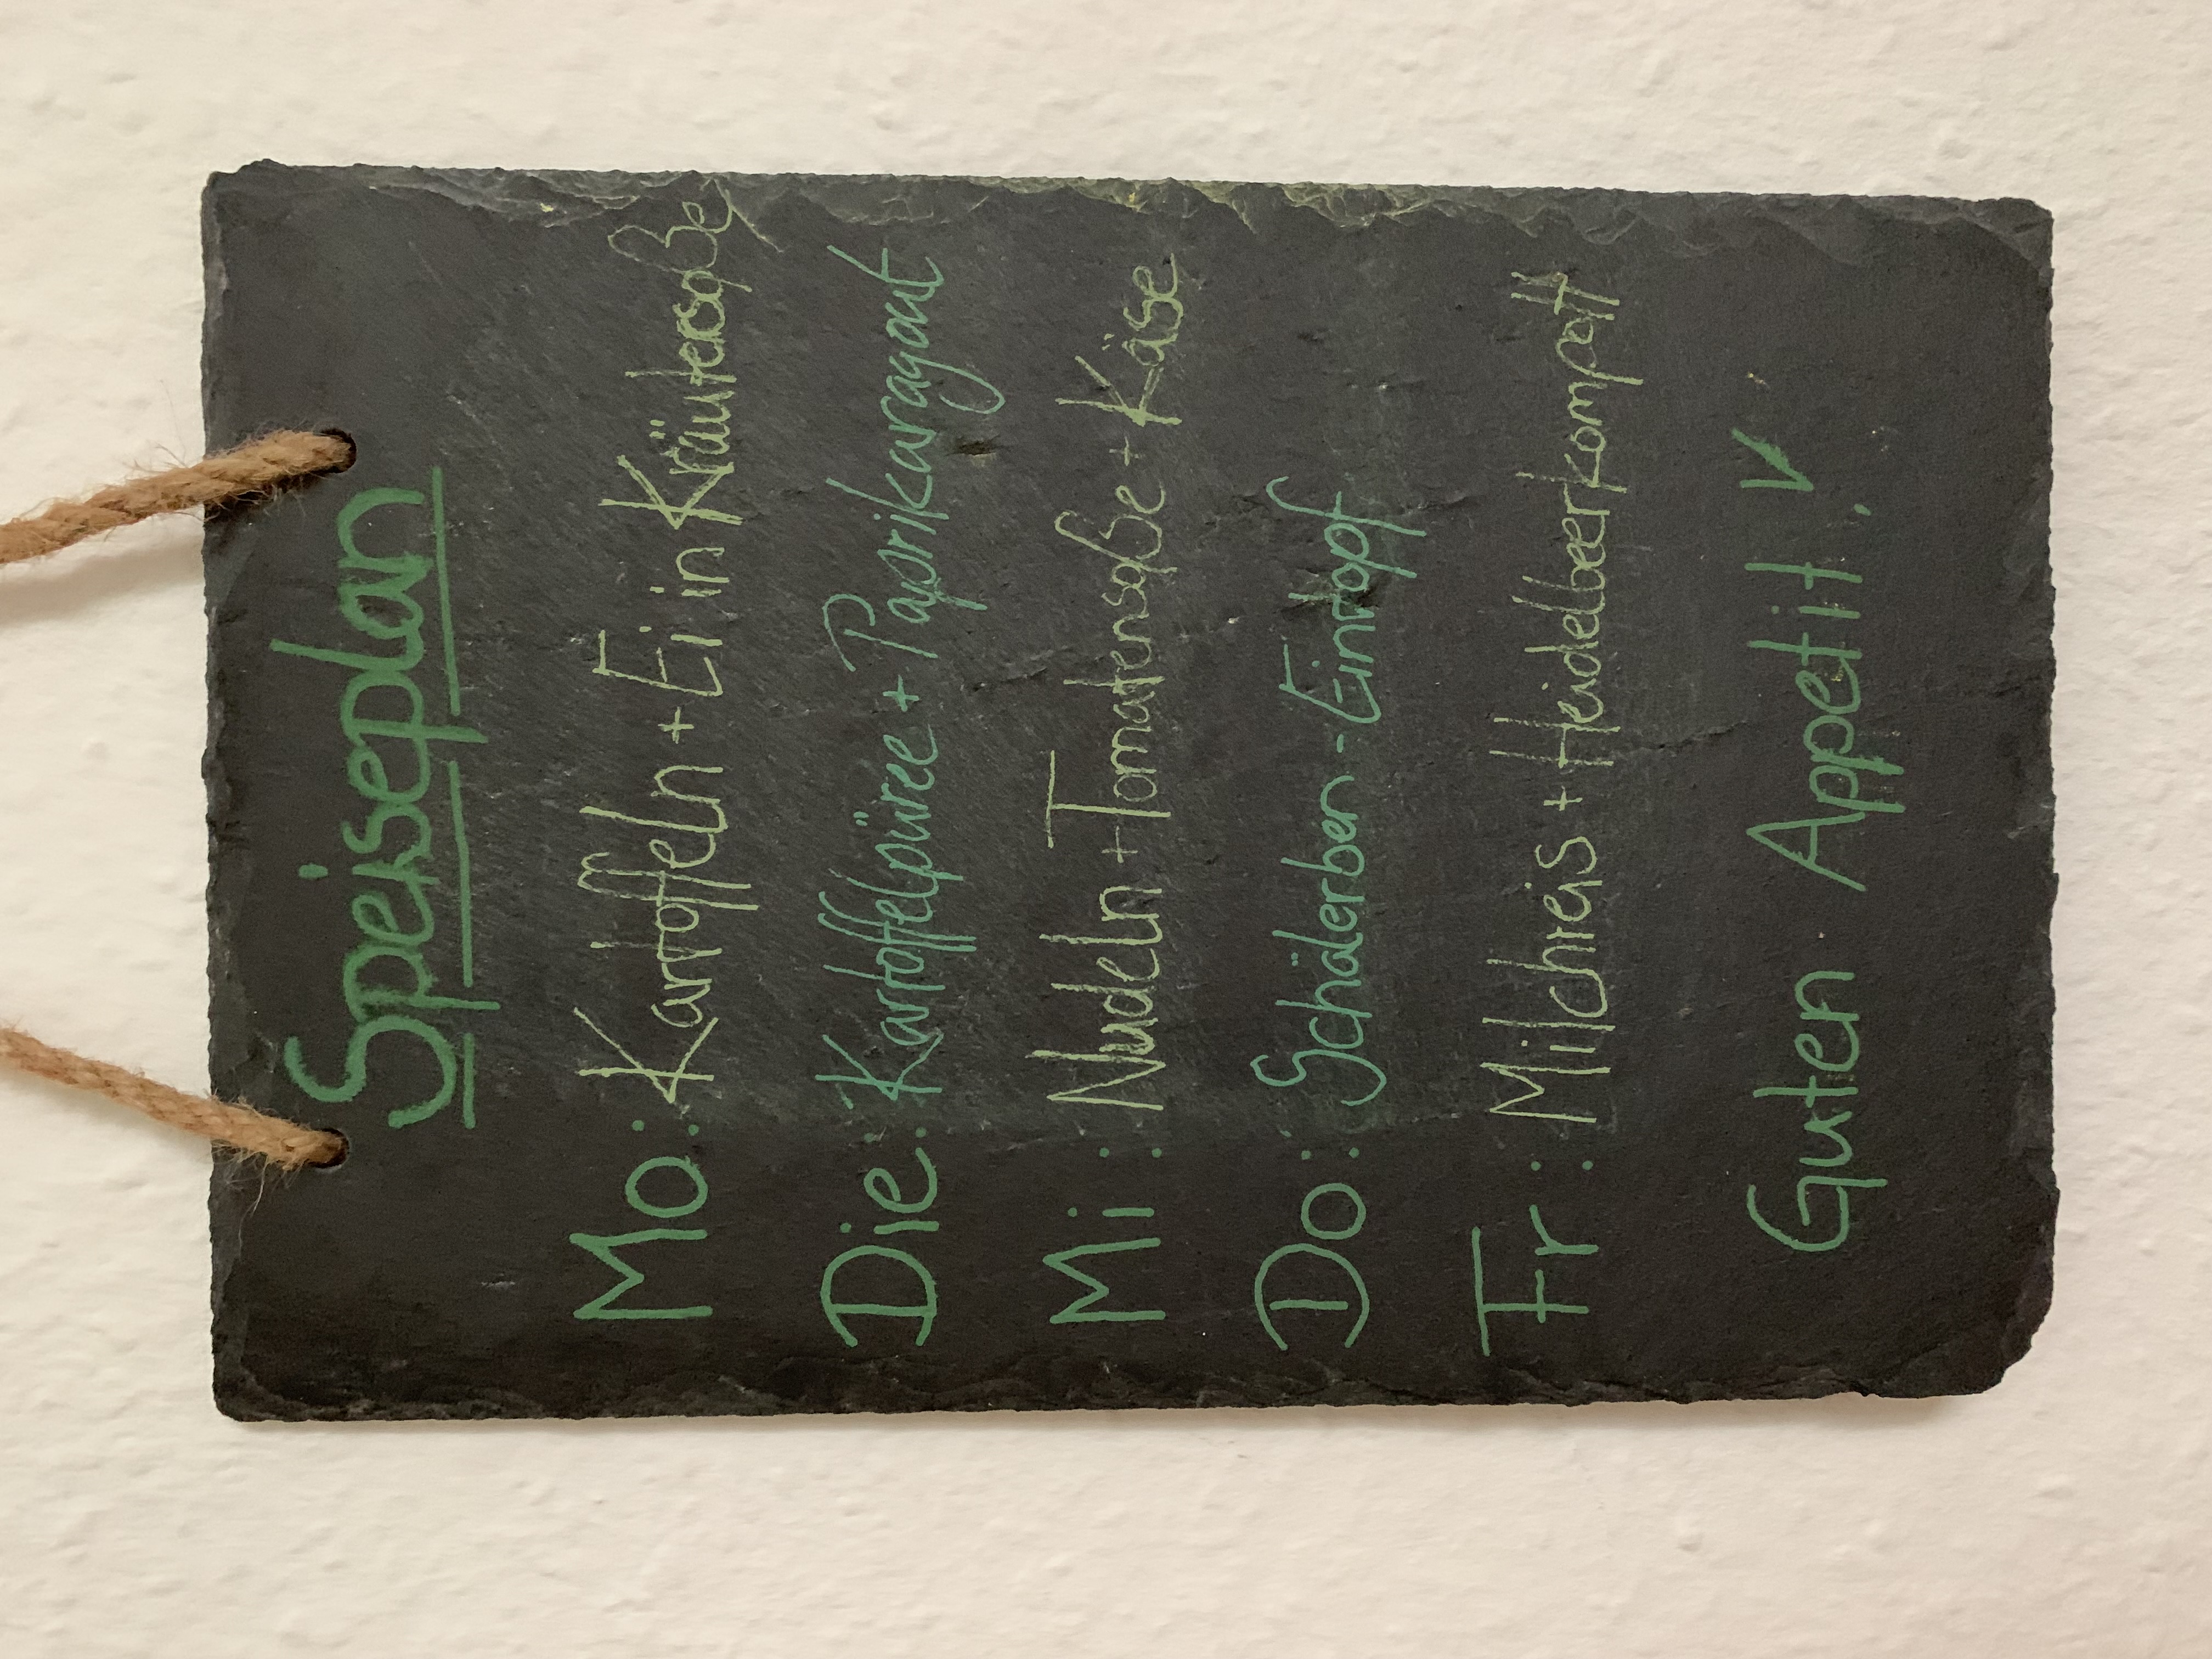 Speiseplan
Mo: Kartoffeln + Ei in Kräutersoße
Die: Kartoffelpüree + Paprikaragout
Mi: Nudeln + Tomatensoße + Käse
Do: Schälerben-Eintopf
Fr: Milchreis + Heidelbeerkompott
Guten Appetit!